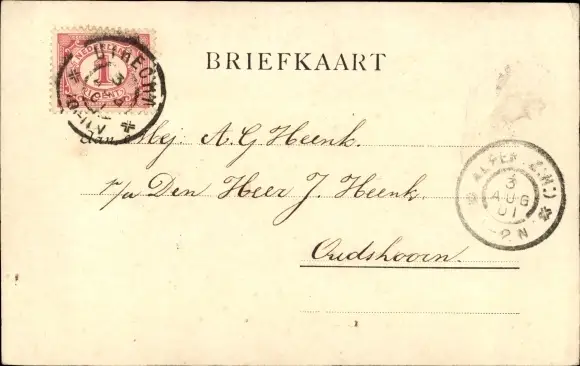 BRIEFKAART
NEDERLAND
1
CENT
UTRECHT
3
Aan Mej. A. G. Heenk.
p/a Den Heer J. Heenk.
Oudshoorn.
ALPEN (Z:H:)
3
AUG
01
2 N